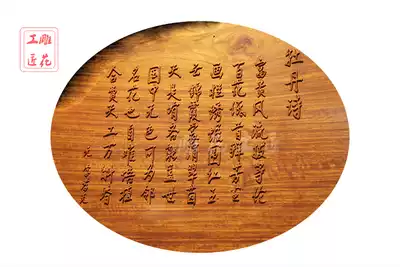 雕花
工匠
牡丹诗
富贵风流拔等伦
百花低首拜芳
画栏绣幄围红玉
云锦霞裳翠茵
天有世
国中无色可为邻
名花也自难培植
合费天工万斛春